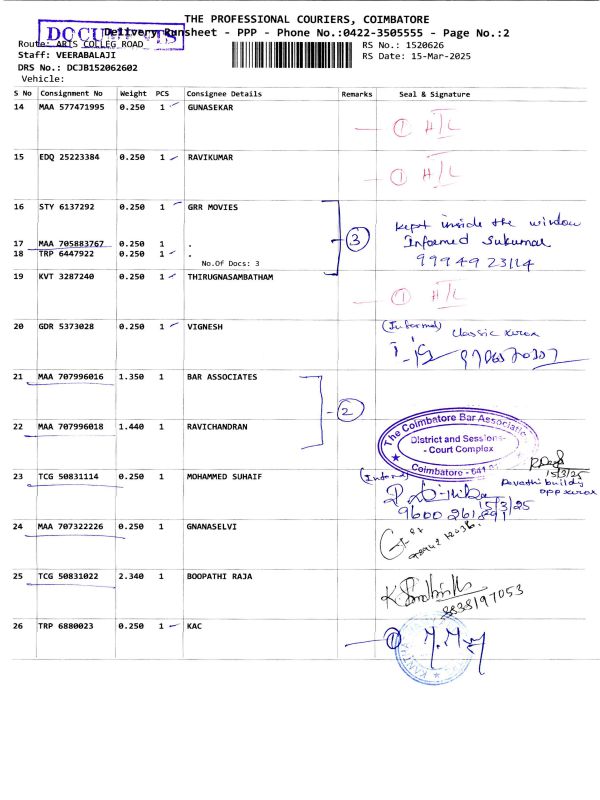 THE PROFESSIONAL COURIERS, COIMBATORE
DOCUMENTS
Delivery Runsheet - PPP - Phone No.:0422-3505555 - Page No.:2
Route: ARTS COLLEG ROAD
RS No.: 1520626
Staff: VEERABALAJI
RS Date: 15-Mar-2025
DRS No.: DCJB152062602
Vehicle:
S No Consignment No Weight PCS Consignee Details Remarks Seal & Signature
14 MAA 577471995 0.250 1 GUNASEKAR
① H/L
15 EDQ 25223384 0.250 1 RAVIKUMAR
① H/L
16 STY 6137292 0.250 1 GRR MOVIES
kept inside the window
17 MAA 705883767 0.250 1 .
③ Informed Sukumar
18 TRP 6447922 0.250 1 .
No.Of Docs: 3
19 KVT 3287240 0.250 1 THIRUGNASAMBATHAM
① H/L
20 GDR 5373028 0.250 1 VIGNESH
(Informed) classic xerox
21 MAA 707996016 1.350 1 BAR ASSOCIATES
②
22 MAA 707996018 1.440 1 RAVICHANDRAN
The Coimbatore Bar Association
District and Sessions-
- Court Complex
Coimbatore - 641
15/3/25
23 TCG 50831114 0.250 1 MOHAMMED SUHAIF
opp xerox
15/3/25
9600 261891
24 MAA 707322226 0.250 1 GNANASELVI
25 TCG 50831022 2.340 1 BOOPATHI RAJA
8838197053
26 TRP 6880023 0.250 1 KAC
①